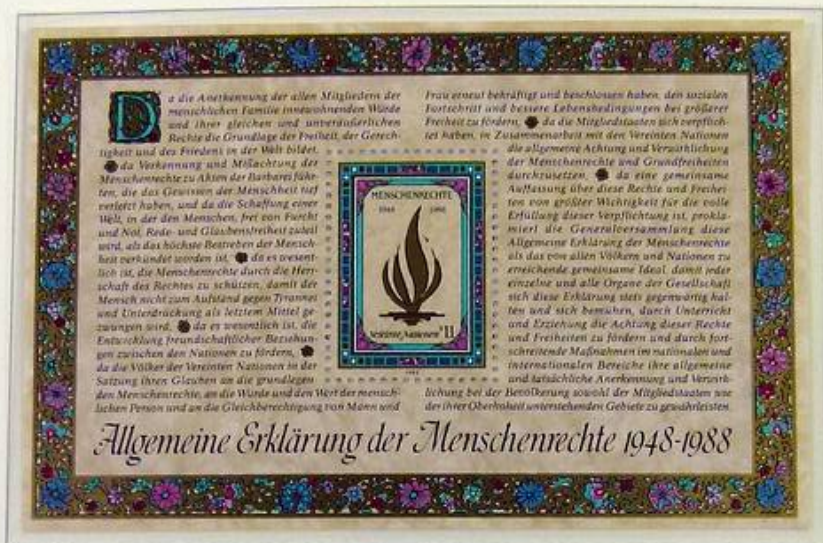 Da die Anerkennung der allen Mitgliedern der
menschlichen Familie innewohnenden Würde
und ihrer gleichen und unveräußerlichen
Rechte die Grundlage der Freiheit, der Gerech-
tigkeit und des Friedens in der Welt bildet,
da Verkennung und Mißachtung der
Menschenrechte zu Akten der Barbarei führ-
ten, die das Gewissen der Menschheit tief
verletzt haben, und da die Schaffung einer
Welt, in der den Menschen, frei von Furcht
und Not, Rede- und Glaubensfreiheit zuteil
wird, als das höchste Bestreben der Mensch-
heit verkündet worden ist, da es wesent-
lich ist, die Menschenrechte durch die Herr-
schaft des Rechtes zu schützen, damit der
Mensch nicht zum Aufstand gegen Tyrannei
und Unterdrückung als letztem Mittel ge-
zwungen wird, da es wesentlich ist, die
Entwicklung freundschaftlicher Beziehun-
gen zwischen den Nationen zu fördern,
da die Völker der Vereinten Nationen in der
Satzung ihren Glauben an die grundlegen-
den Menschenrechte, an die Würde und den Wert der mensch-
lichen Person und an die Gleichberechtigung von Mann und
Frau erneut bekräftigt und beschlossen haben, den sozialen
Fortschritt und bessere Lebensbedingungen bei größerer
Freiheit zu fördern, da die Mitgliedstaaten sich verpflich-
tet haben, in Zusammenarbeit mit den Vereinten Nationen
die allgemeine Achtung und Verwirklichung
der Menschenrechte und Grundfreiheiten
durchzusetzen, da eine gemeinsame
Auffassung über diese Rechte und Freihei-
ten von größter Wichtigkeit für die volle
Erfüllung dieser Verpflichtung ist, prokla-
miert die Generalversammlung diese
Allgemeine Erklärung der Menschenrechte
als das von allen Völkern und Nationen zu
erreichende gemeinsame Ideal, damit jeder
einzelne und alle Organe der Gesellschaft
sich diese Erklärung stets gegenwärtig hal-
ten und sich bemühen, durch Unterricht
und Erziehung die Achtung dieser Rechte
und Freiheiten zu fördern und durch fort-
schreitende Maßnahmen im nationalen und
internationalen Bereiche ihre allgemeine
und tatsächliche Anerkennung und Verwirk-
lichung bei der Bevölkerung sowohl der Mitgliedstaaten wie
der ihrer Oberhoheit unterstehenden Gebiete zu gewährleisten
MENSCHENRECHTE
1948 1988
Vereinte Nationen S11
1988
Allgemeine Erklärung der Menschenrechte 1948-1988